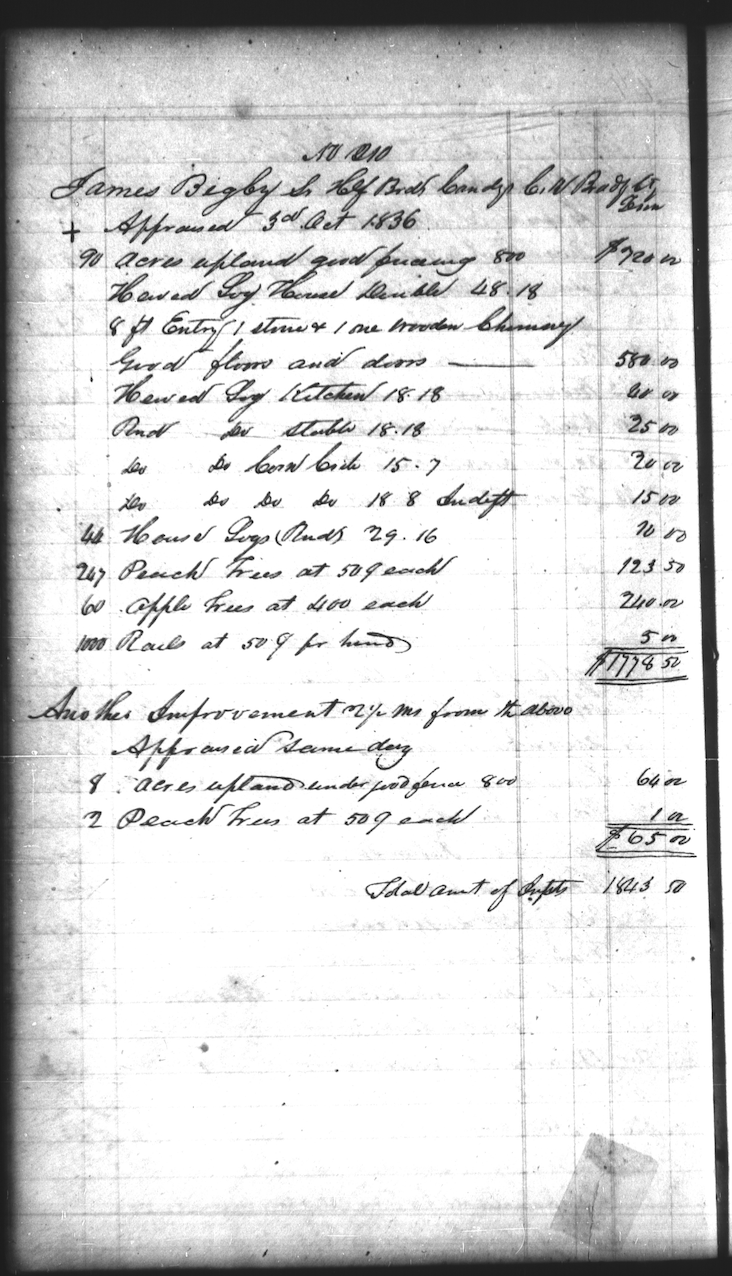 No 210
James Bigby Sr Hlf Brd Candys C. N Bradly Ct
Tenn
+ Appraised 3d Oct 1836
90 Acres upland good fencing 800 $720 00
Hewed Log House Double 48.18
8 ft Entry 1 stone & 1 one wooden Chimney
Good floors and doors — 580.00
Hewed Log Kitchen 18.18 40 00
Rnd Do stable 18.18 25 00
Do Do Corn Crib 15.7 20 00
Do Do Do Do 18 8 Indeft 15 00
44 House Logs Rnd 29.16 10 00
247 Peach Trees at 50 each 123 50
60 Apple Trees at 400 each 240.00
1000 Rails at 50 pr hund 5 00
$1778 50
Another Improvement 2½ ms from th above
Appraised same day
8 Acres upland under good fence 800 64 00
2 Peach Trees at 50 each 1 00
$65 00
Total amt of Impts 1843 50